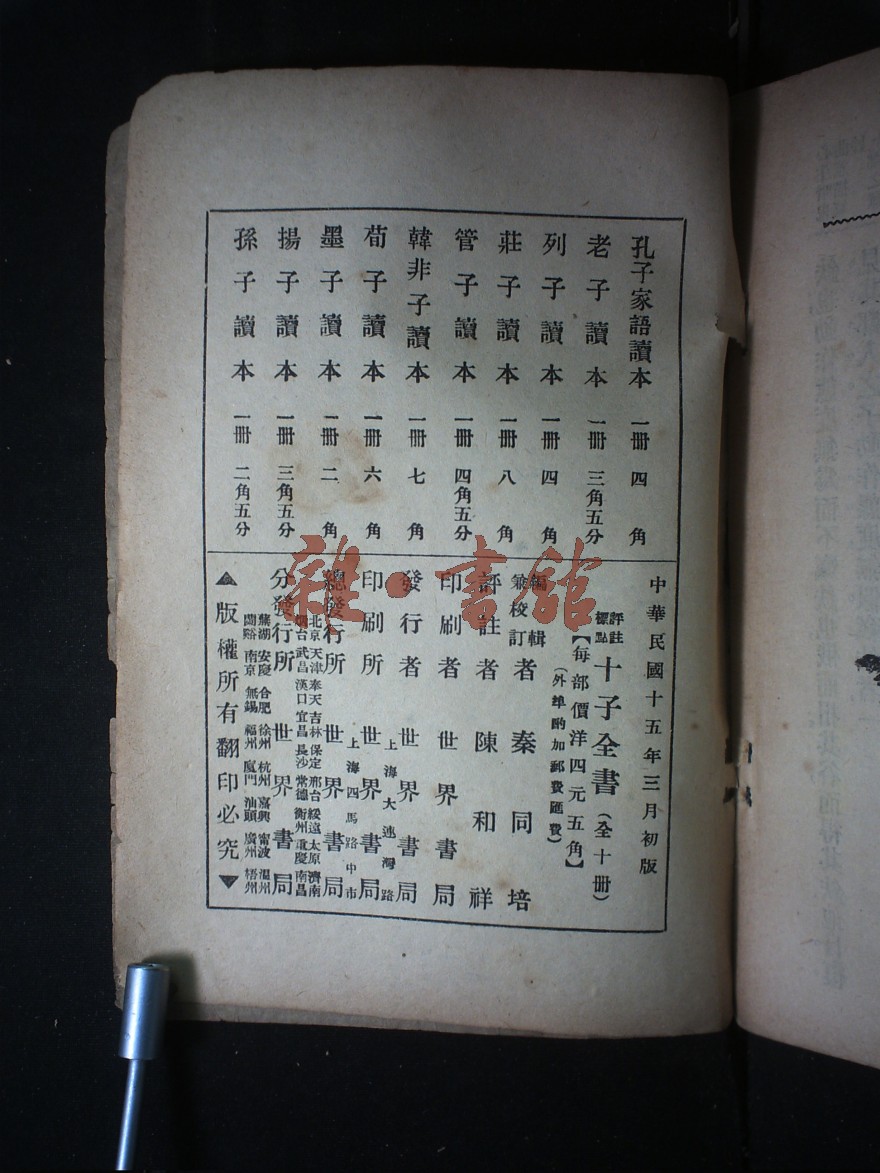 孔子家語讀本 一冊 四角
老子讀本 一冊 三角五分
列子讀本 一冊 四角
莊子讀本 一冊 八角
管子讀本 一冊 四角五分
韓非子讀本 一冊 七角
荀子讀本 一冊 六角
墨子讀本 一冊 二角
揚子讀本 一冊 三角五分
孫子讀本 一冊 二角五分
中華民國十五年三月初版
評註標點 十子全書(全十冊)
【每部價洋四元五角】
(外埠酌加郵費匯費)
編輯兼校訂者 秦同培
評註者 陳和祥
印刷者 世界書局
發行者 世界書局
上海大連灣路
印刷所 世界書局
上海四馬路中市
總發行所 世界書局
北京 天津 奉天 吉林 保定 邢台 綏遠 太原 濟南
烟台 武昌 漢口 宜昌 長沙 常德 衡州 重慶 南昌
分發行所 世界書局
蕪湖 安慶 合肥 徐州 杭州 嘉興 甯波 溫州
蘭谿 南京 無錫 福州 廈門 汕頭 廣州 梧州
▲版權所有翻印必究▼
雜·書館